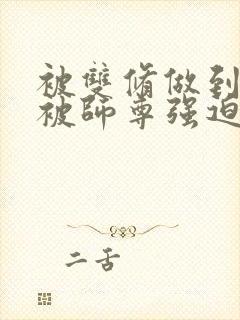 被雙脩做到
被師尊强迫
二舌